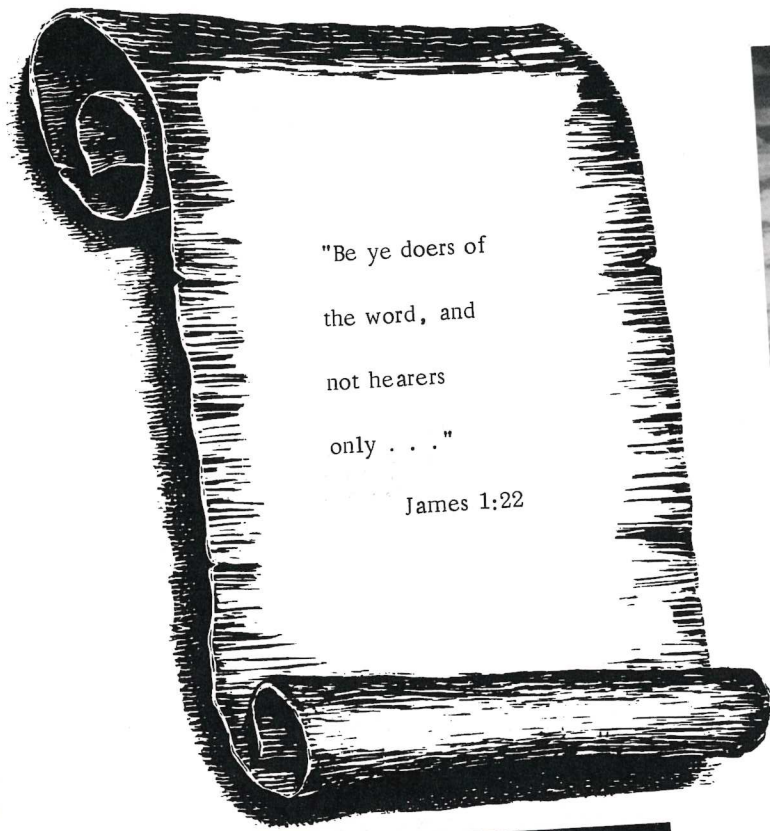 "Be ye doers of
the word, and
not hearers
only . . ."
James 1:22